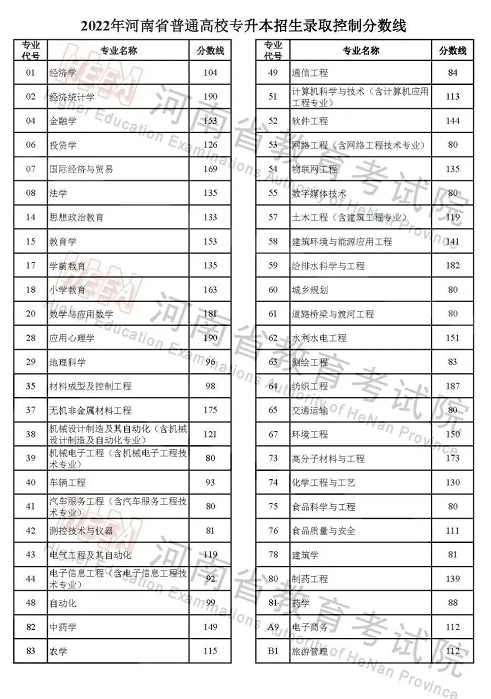 2022年河南省普通高校专升本招生录取控制分数线
专业代号 专业名称 分数线
01 经济学 104
02 经济统计学 190
04 金融学 153
06 投资学 126
07 国际经济与贸易 169
08 法学 135
14 思想政治教育 133
15 教育学 153
17 学前教育 135
18 小学教育 163
20 数学与应用数学 181
28 应用心理学 190
29 地理科学 96
35 材料成型及控制工程 98
37 无机非金属材料工程 175
38 机械设计制造及其自动化（含机械
设计制造及自动化专业） 121
39 机械电子工程（含机械电子工程技
术专业） 80
40 车辆工程 93
41 汽车服务工程（含汽车服务工程技
术专业） 80
42 测控技术与仪器 81
43 电气工程及其自动化 119
44 电子信息工程（含电子信息工程技
术专业） 92
48 自动化 90
82 中药学 149
83 农学 115
专业代号 专业名称 分数线
49 通信工程 84
51 计算机科学与技术（含计算机应用
工程专业） 113
52 软件工程 144
53 网络工程（含网络工程技术专业） 80
54 物联网工程 135
55 数字媒体技术 80
57 土木工程（含建筑工程专业） 119
58 建筑环境与能源应用工程 141
59 给排水科学与工程 182
60 城乡规划 80
61 道路桥梁与渡河工程 80
62 水利水电工程 151
63 测绘工程 83
64 纺织工程 187
65 交通运输 80
67 环境工程 150
73 高分子材料与工程 173
74 化学工程与工艺 130
75 食品科学与工程 80
76 食品质量与安全 111
78 建筑学 81
80 制药工程 139
81 药学 88
A9 电子商务 112
B1 旅游管理 112
河南省教育考试院
Higher Education Examinations Authority of HeNan Province
河南省教育考试院
Higher Education Examinations Authority of HeNan Province
河南省教育考试院
Higher Education Examinations Authority of HeNan Province